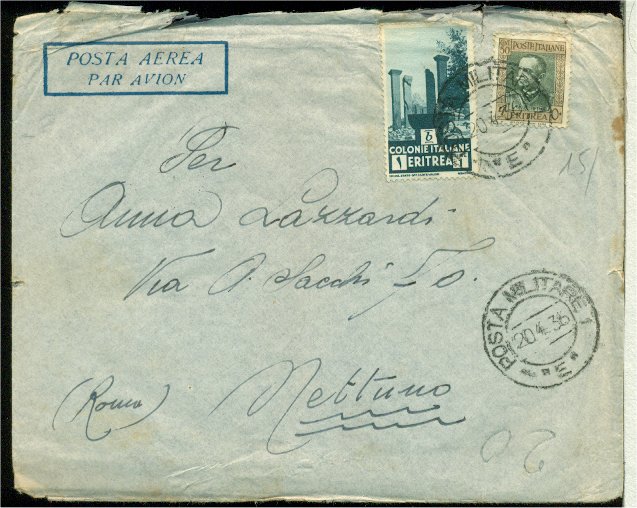 POSTA AEREA
PAR AVION
POSTE ITALIANE
ERITREA
COLONIE ITALIANE
1 ERITREA 1
MILITAR
20.4
"E"
15/
Per
Anna Lazzardi
Via A. Sacchi
POSTA MILITARE 1
20.4.36
"E"
(Roma) Nettuno